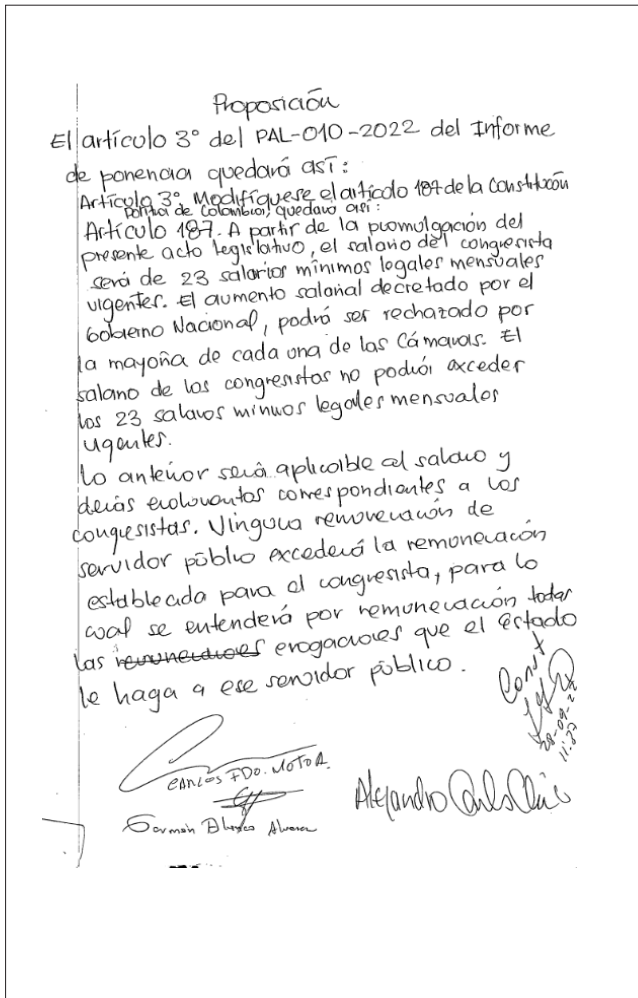 Proposición
El artículo 3° del PAL-010-2022 del Informe
de ponencia quedará así:
Artículo 3°. Modifíquese el artículo 187 de la Constitución
Política de Colombia, quedará así:
Artículo 187. A partir de la promulgación del
presente acto legislativo, el salario del congresista
será de 23 salarios mínimos legales mensuales
vigentes. El aumento salarial decretado por el
Gobierno Nacional, podrá ser rechazado por
la mayoría de cada una de las Cámaras. El
salario de los congresistas no podrá exceder
los 23 salarios mínimos legales mensuales
vigentes.
Lo anterior será aplicable al salario y
demás emolumentos correspondientes a los
congresistas. Ninguna remuneración de
servidor público excederá la remuneración
establecida para el congresista, para lo
cual se entenderá por remuneración todas
las remuneraciones erogaciones que el Estado
le haga a ese servidor público.
Const
28-09-22
11:27
CARLOS FDO. MOTOA.
Germán Blanco Alvarez
Alejandro Carlos Chacón